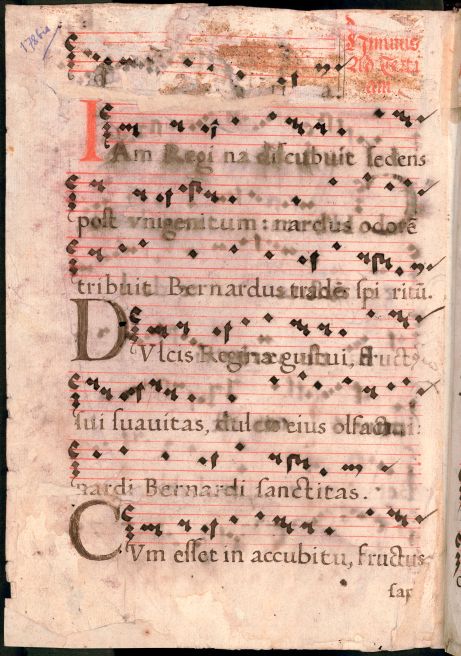 178bis
Himnus
Ad Terti
am
IAm Regi na discubuit sedens
post vnigenitum: nardus odorē
tribuit Bernardus tradēs spi ritū.
DVlcis Reginæ gustui, fructus
sui suauitas, dulcis eius olfactui:
nardi Bernardi sanctitas.
CVm esset in accubitu, fructus